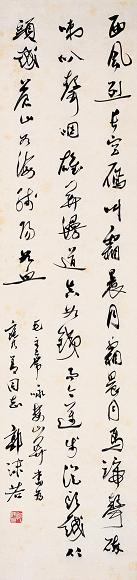 西风烈长空雁叫霜晨月霜晨月马蹄声碎
喇叭声咽雄关漫道真如铁而今迈步从头越从
头越苍山如海残阳如血
毛主席咏娄山关书为
同志 郭沫若